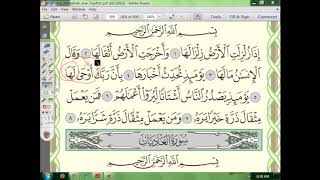 بِسْمِ اللَّهِ الرَّحْمَٰنِ الرَّحِيمِ
إِذَا زُلْزِلَتِ الْأَرْضُ زِلْزَالَهَا ١ وَأَخْرَجَتِ الْأَرْضُ أَثْقَالَهَا ٢ وَقَالَ
الْإِنسَانُ مَا لَهَا ٣ يَوْمَئِذٍ تُحَدِّثُ أَخْبَارَهَا ٤ بِأَنَّ رَبَّكَ أَوْحَىٰ لَهَا
٥ يَوْمَئِذٍ يَصْدُرُ النَّاسُ أَشْتَاتًا لِّيُرَوْا أَعْمَالَهُمْ ٦ فَمَن يَعْمَلْ
مِثْقَالَ ذَرَّةٍ خَيْرًا يَرَهُ ٧ وَمَن يَعْمَلْ مِثْقَالَ ذَرَّةٍ شَرًّا يَرَهُ ٨
سُورَةُ الْعَادِيَاتِ
بِسْمِ اللَّهِ الرَّحْمَٰنِ الرَّحِيمِ